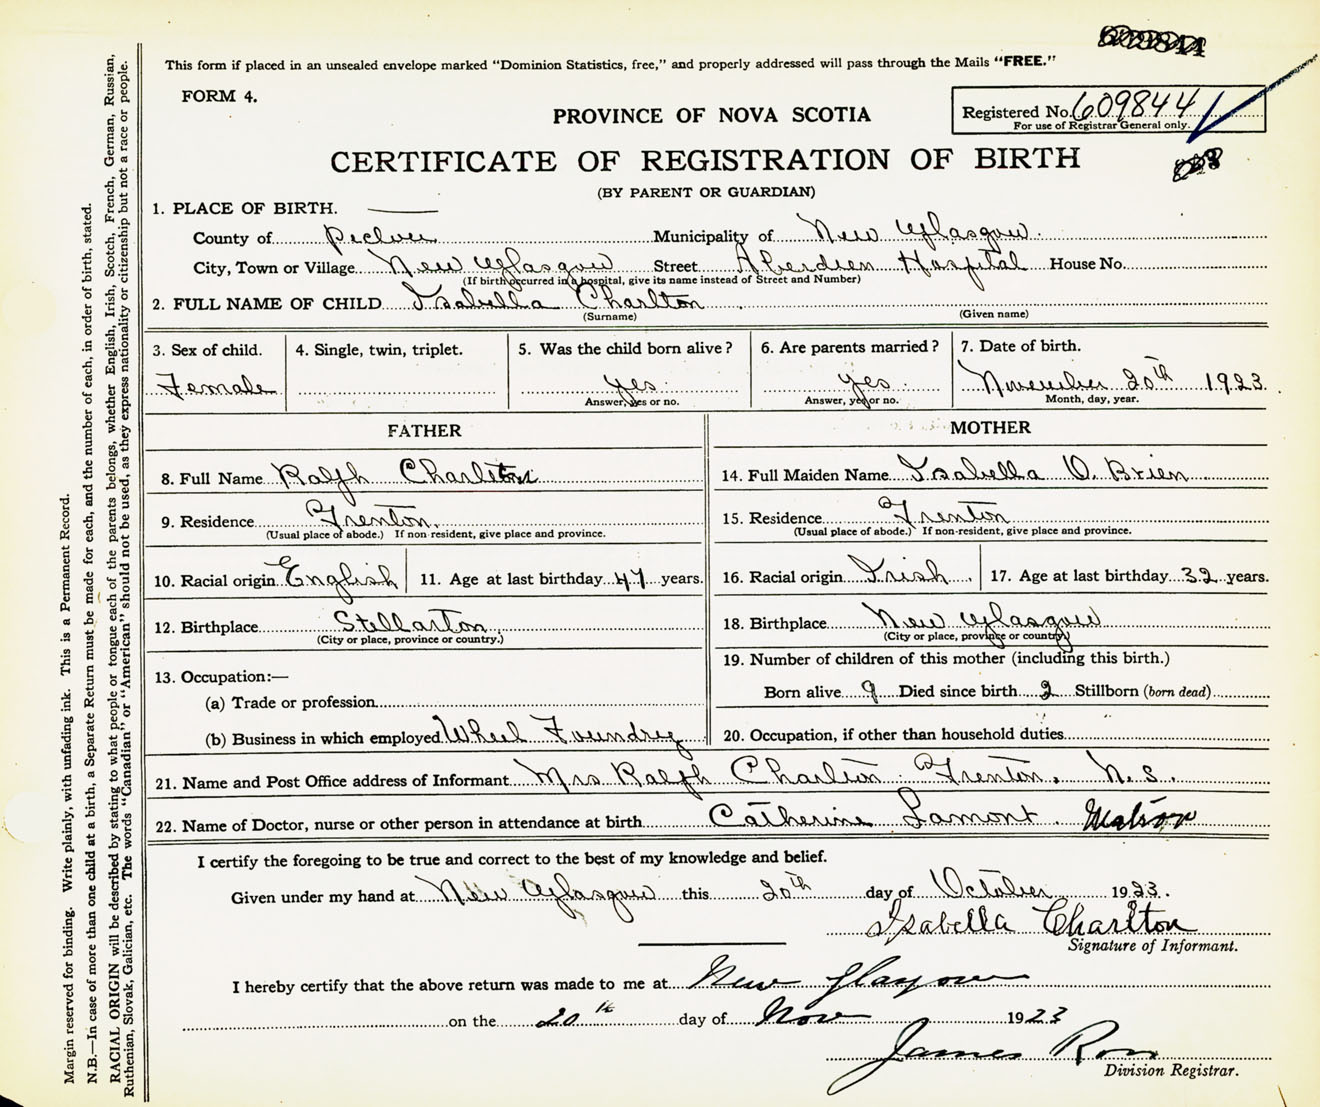 This form if placed in an unsealed envelope marked "Dominion Statistics, free," and properly addressed will pass through the Mails "FREE."
FORM 4.
PROVINCE OF NOVA SCOTIA
Registered No. 609844
For use of Registrar General only.
CERTIFICATE OF REGISTRATION OF BIRTH
(BY PARENT OR GUARDIAN)
1. PLACE OF BIRTH.
County of Pictou Municipality of New Glasgow.
City, Town or Village New Glasgow Street Aberdeen Hospital House No.
(If birth occurred in a hospital, give its name instead of Street and Number)
2. FULL NAME OF CHILD Isabella Charlton
(Surname) (Given name)
3. Sex of child. 4. Single, twin, triplet. 5. Was the child born alive? 6. Are parents married? 7. Date of birth.
Female yes. yes. November 20th 1923.
Answer, yes or no. Answer, yes or no. Month, day, year.
FATHER MOTHER
8. Full Name Ralph Charlton 14. Full Maiden Name Isabella O. Brien
9. Residence Trenton. 15. Residence Trenton
(Usual place of abode.) If non-resident, give place and province. (Usual place of abode.) If non-resident, give place and province.
10. Racial origin English 11. Age at last birthday 47 years. 16. Racial origin Irish 17. Age at last birthday 32 years.
12. Birthplace Stellarton. 18. Birthplace New Glasgow
(City or place, province or country.) (City or place, province or country)
13. Occupation:— 19. Number of children of this mother (including this birth.)
(a) Trade or profession Born alive 9 Died since birth 2 Stillborn (born dead)
(b) Business in which employed Wheel Foundry 20. Occupation, if other than household duties
21. Name and Post Office address of Informant Mrs Ralph Charlton Trenton. N.S.
22. Name of Doctor, nurse or other person in attendance at birth Catherine Lamont. Matron
I certify the foregoing to be true and correct to the best of my knowledge and belief.
Given under my hand at New Glasgow this 20th day of October 1923.
Isabella Charlton
Signature of Informant.
I hereby certify that the above return was made to me at New Glasgow
on the 20th day of Nov 1923
James Ross
Division Registrar.
Margin reserved for binding. Write plainly, with unfading ink. This is a Permanent Record.
N.B.—In case of more than one child at a birth, a Separate Return must be made for each, and the number of each, in order of birth, stated.
RACIAL ORIGIN will be described by stating to what people or tongue each of the parents belongs, whether English, Irish, Scotch, French, German, Russian,
Ruthenian, Slovak, Galician, etc. The words "Canadian" or "American" should not be used, as they express nationality or citizenship but not a race or people.